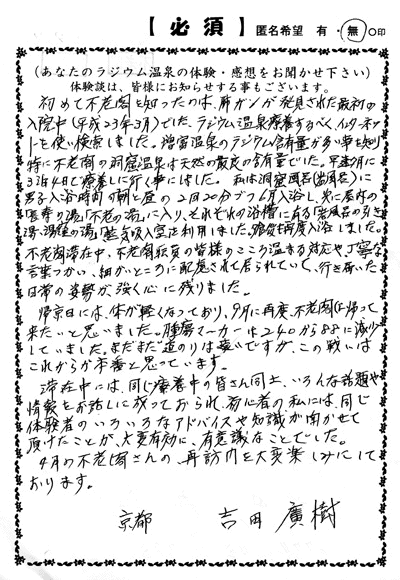 【必須】 匿名希望 有・無 ○印
(あなたのラジウム温泉の体験・感想をお聞かせ下さい)
体験談は、皆様にお知らせする事もございます。
初めて不老閣を知ったのは、肝ガンが発見された最初の
入院中(平成23年3月)でした、ラジウム温泉療養するべく、インターネッ
トを使い検索しました。増富温泉のラジウム含有量が多い事を知り
特に不老閣の洞窟温泉は天然の最大の含有量でした。早速7月に
3泊4日で療養しに行く事にしました。私は洞窟風呂(岩風呂)に
男子入浴時間の朝と昼の2回20分づつ6入浴と、
長寿の湯、「不老の湯」に入り、それぞれの浴槽に有る
吸入室を利用しました。再度入浴しました。
不老閣滞在中、不老閣従業員の皆様のこころ温まる対応や、丁寧な
言葉づかい、細かいところに配慮されて居られていて、行き届いた
日常の姿勢が、強く心に残りました。
帰京日には、体が軽くなっており、9月に再度、不老閣に帰って
来たいと思いました。腫瘍マーカーは240から88に減少
していました。まだまだ道のりは遠いですが、この戦いは
これからが本番と思っています。
滞在中には、同じ療養中の皆さん同士、いろんな話題や
情報をお話しに成っておられ、初心者の私には、同じ
体験者のいろいろなアドバイスや知識が聞かせて
頂けたことが、大変有効に、有意義なことでした。
4月の不老閣さんの、再訪問を大変楽しみにして
おります。
京都 吉田廣樹